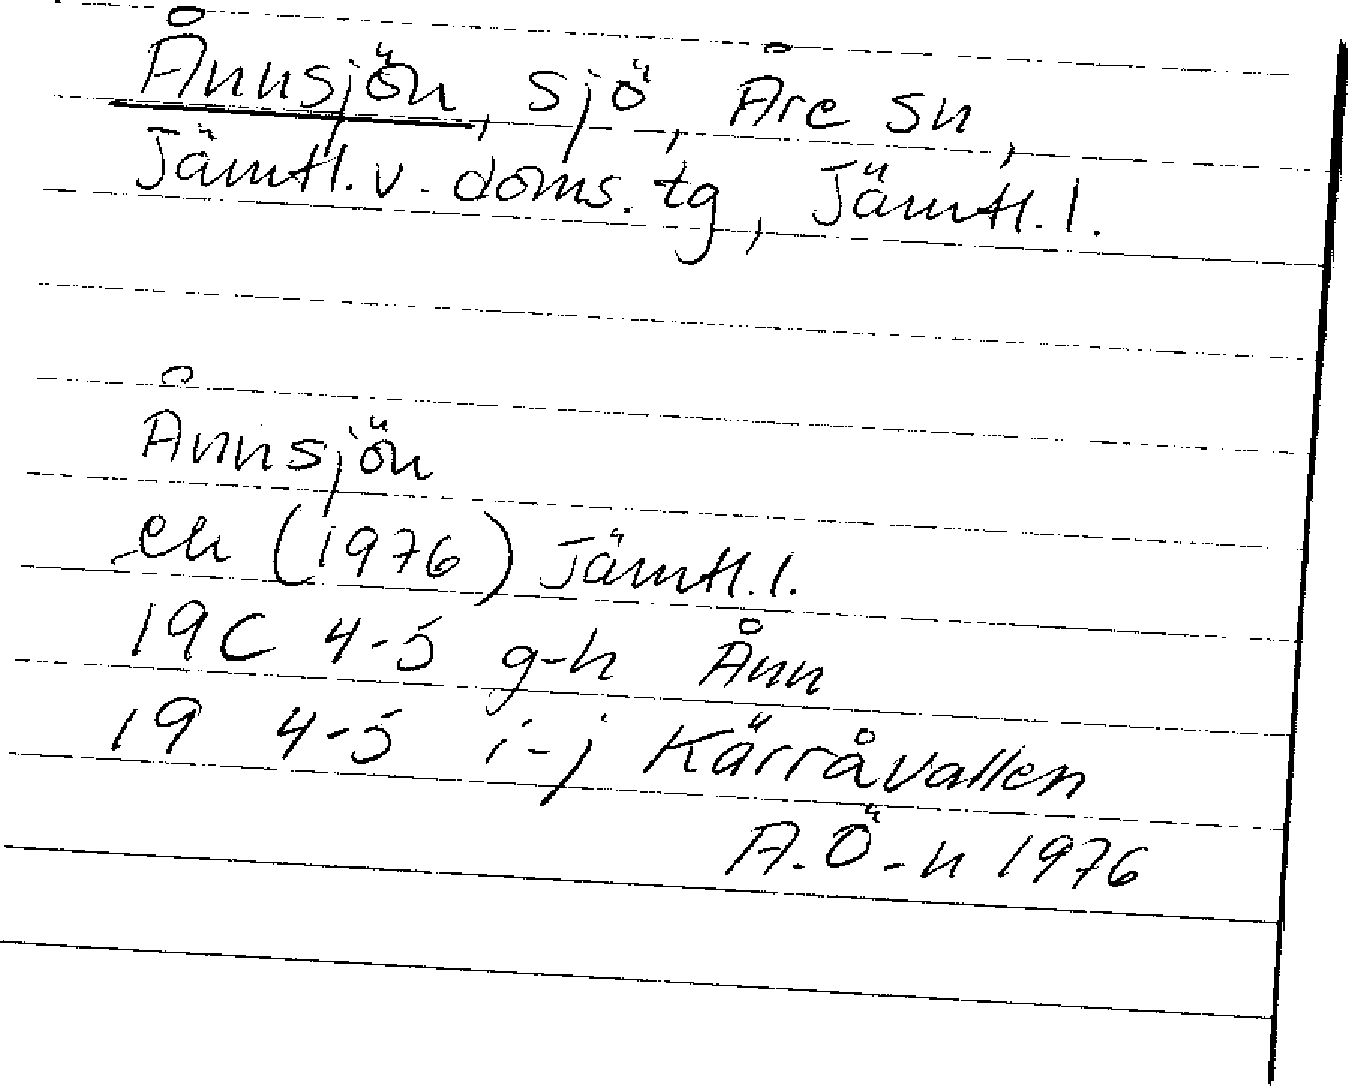 Ånnsjön, sjö, Åre sn,
Jämtl. v. doms. tg, Jämtl. l.
Ånnsjön
ek (1976) Jämtl. l.
19C 4-5 g-h Ånn
19 4-5 i-j Kärråvallen
A. Ö-n 1976